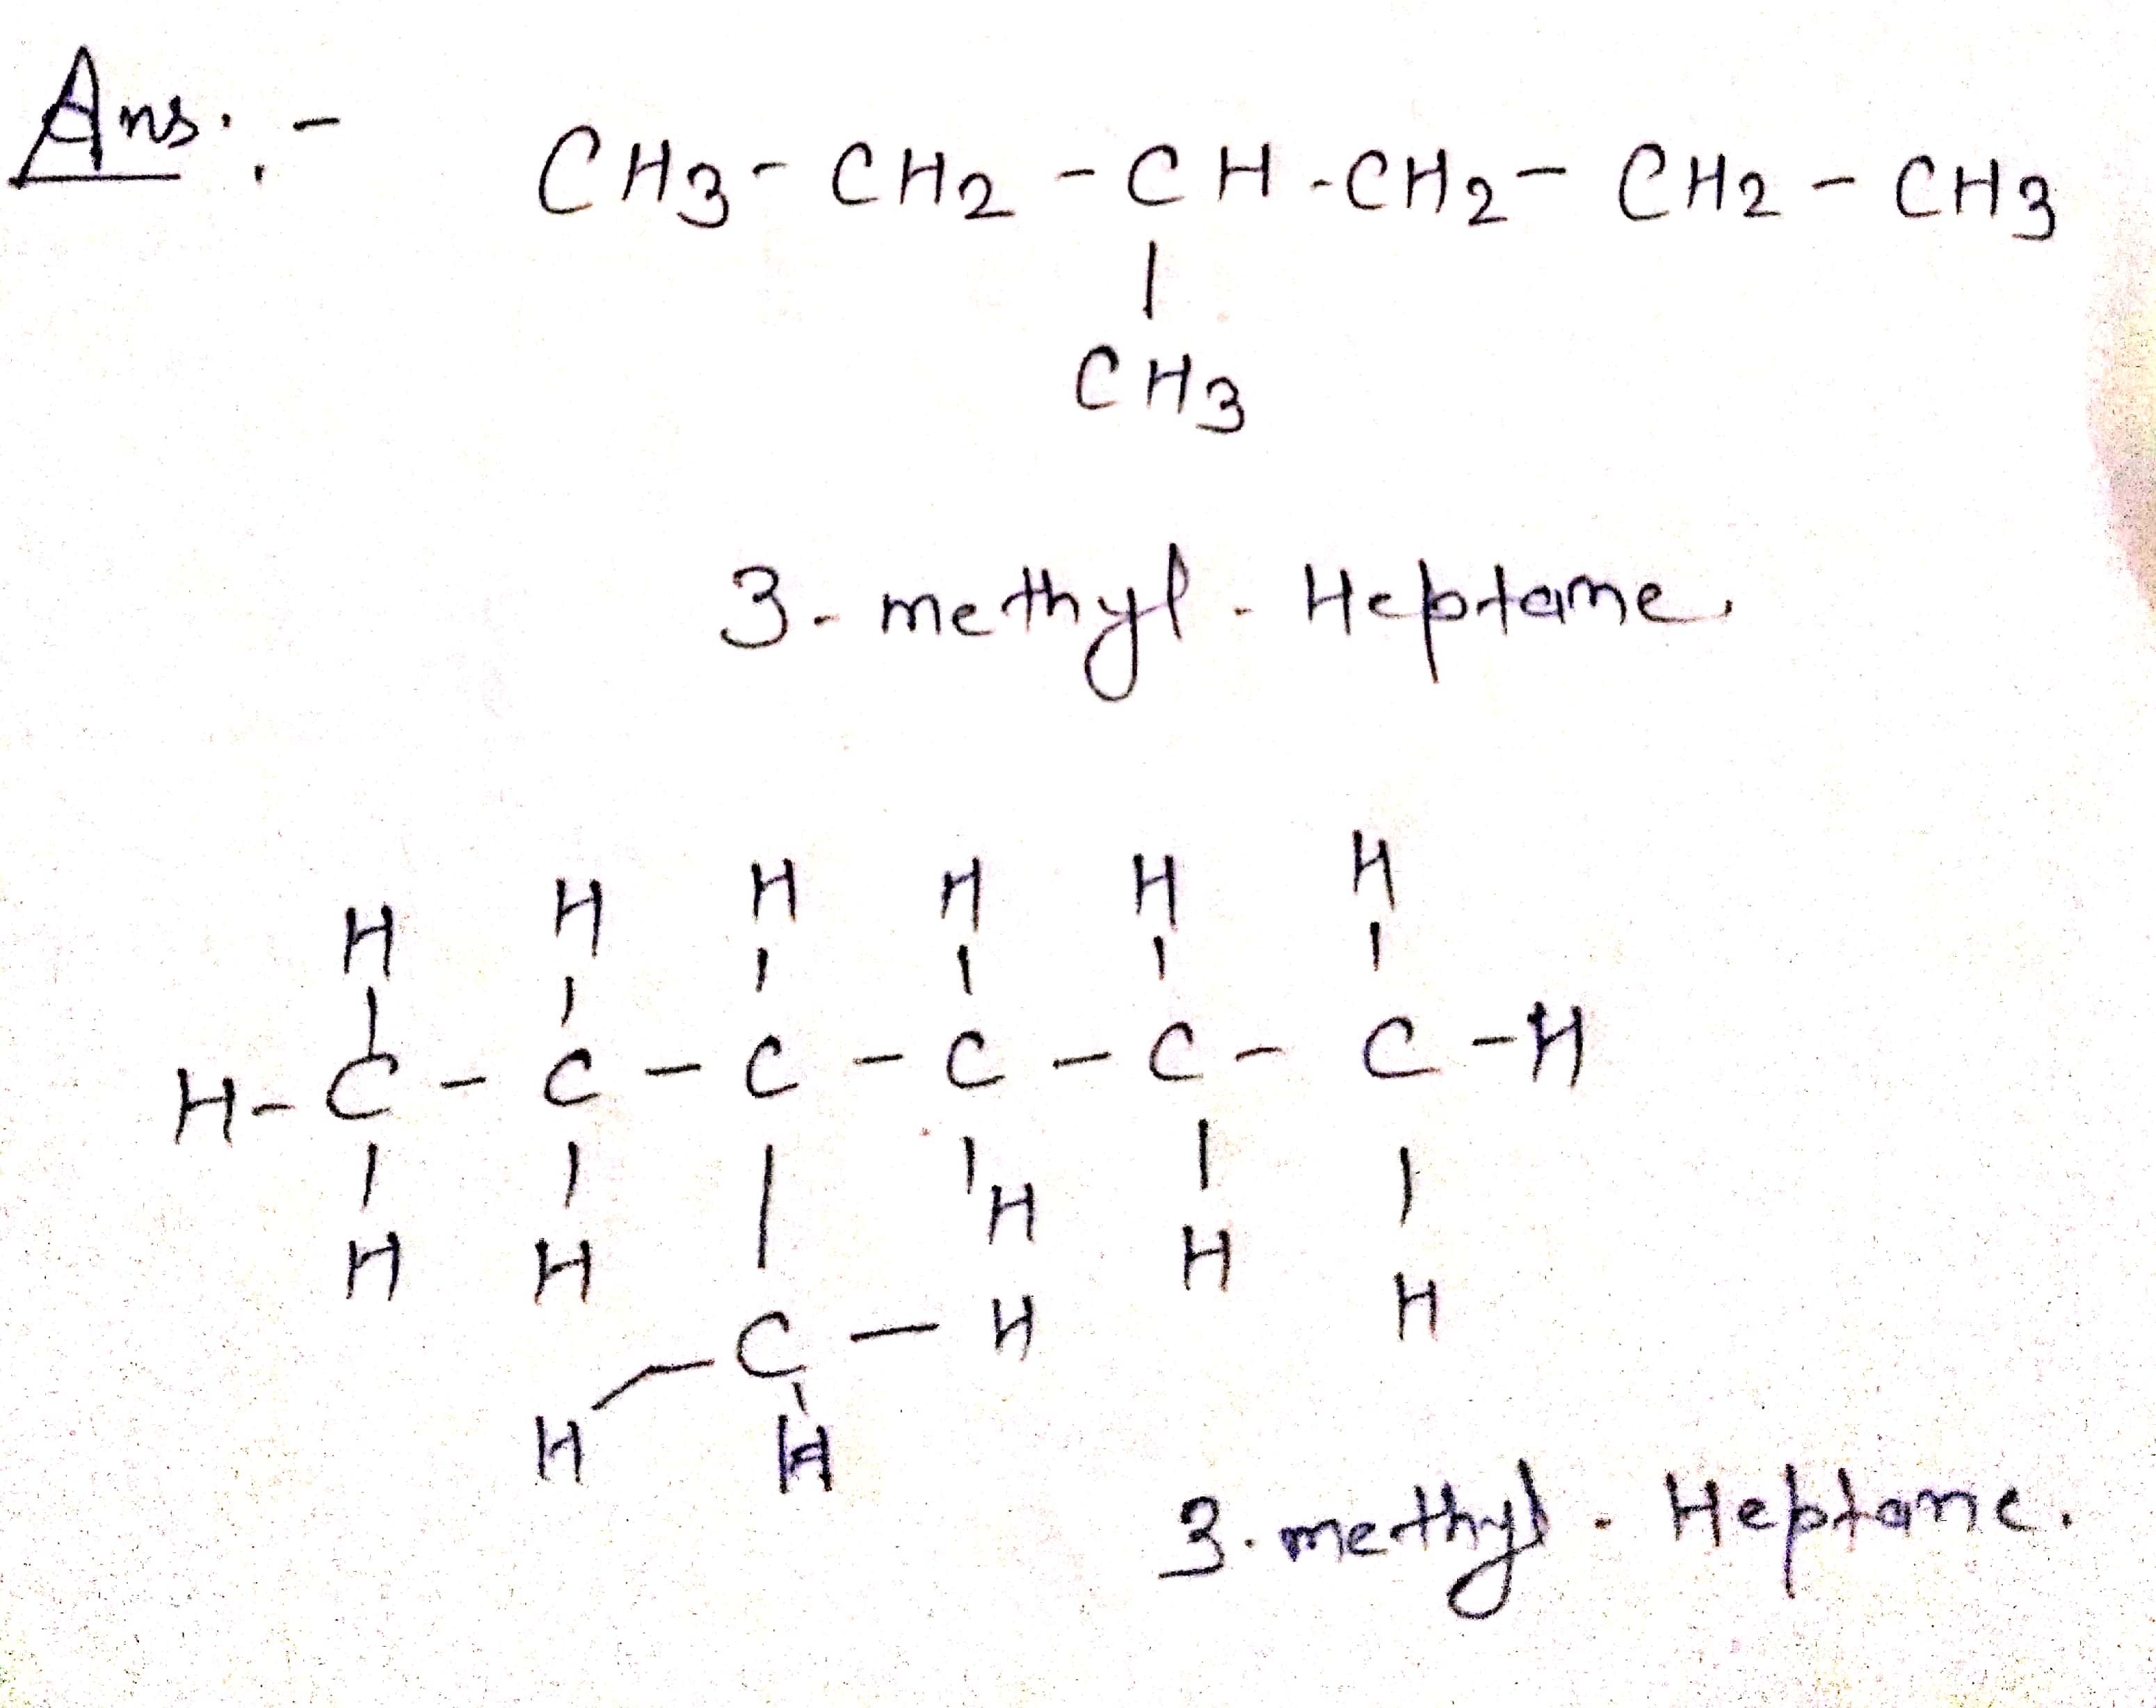 Ans:-
CH3-CH2-CH-CH2-CH2-CH3
|
CH3
3-methyl-Heptane.
H H H H H H
| | | | | |
H-C-C-C-C-C-C-H
| | | | | |
H H H H H
C-H
H H
3-methyl-Heptane.